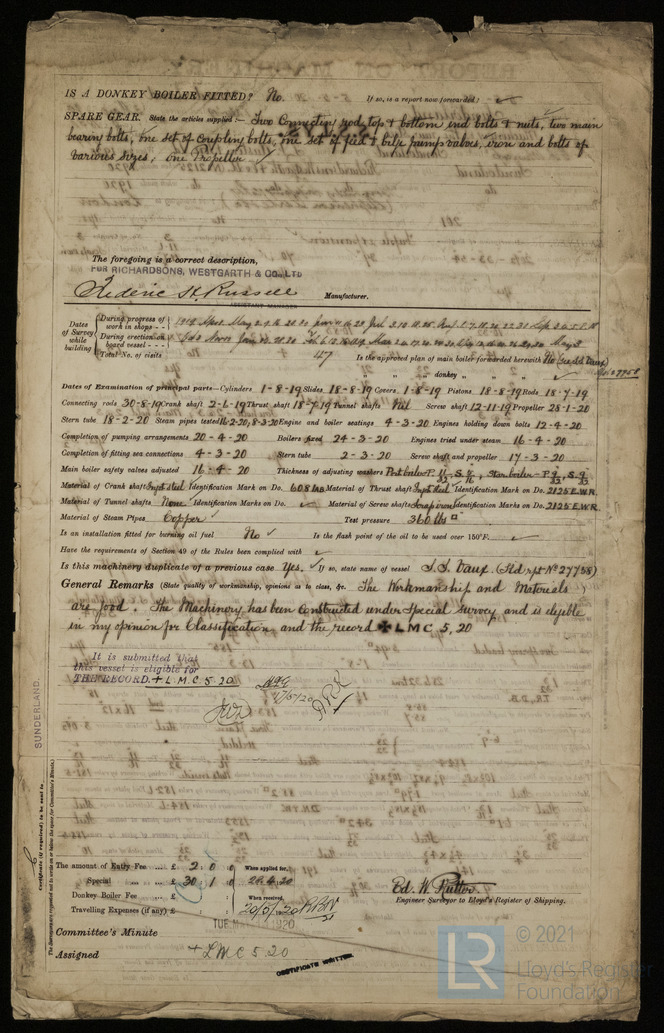 IS A DONKEY BOILER FITTED? No. If so, is a report now forwarded?
SPARE GEAR. State the articles supplied:— Two Connecting rod top & bottom end bolts & nuts, two main
bearing bolts, one set of coupling bolts, one set of feed & bilge pump valves, iron and bolts of
various sizes, one Propeller
The foregoing is a correct description,
FOR RICHARDSONS, WESTGARTH & CO., LTD
Frederic H. Russell Manufacturer.
ASSISTANT MANAGER
Dates of Survey while building
During progress of work in shops - -
During erection on board vessel - - -
Total No. of visits 47 Is the approved plan of main boiler forwarded herewith No (see SS Vaux)
" " " donkey " "
Dates of Examination of principal parts—Cylinders 1-8-19 Slides 18-8-19 Covers 1-8-19 Pistons 18-8-19 Rods 18-7-19
Connecting rods 30-8-19 Crank shaft 2-6-19 Thrust shaft 18-7-19 Tunnel shafts Nil Screw shaft 12-11-19 Propeller 28-1-20
Stern tube 18-2-20 Steam pipes tested 16-2-20, 8-3-20 Engine and boiler seatings 4-3-20 Engines holding down bolts 12-4-20
Completion of pumping arrangements 20-4-20 Boilers fixed 24-3-20 Engines tried under steam 16-4-20
Completion of fitting sea connections 4-3-20 Stern tube 2-3-20 Screw shaft and propeller 17-3-20
Main boiler safety valves adjusted 16-4-20 Thickness of adjusting washers Port boiler P. S. Star. boiler P. S.
Material of Crank shaft Ingot steel Identification Mark on Do. 608 Material of Thrust shaft Ingot steel Identification Mark on Do. 2125 E.W.R.
Material of Tunnel shafts None Identification Marks on Do. Material of Screw shafts Scrap iron Identification Marks on Do. 2125 E.W.R.
Material of Steam Pipes Copper Test pressure 360 lbs
Is an installation fitted for burning oil fuel No Is the flash point of the oil to be used over 150°F.
Have the requirements of Section 49 of the Rules been complied with
Is this machinery duplicate of a previous case Yes. If so, state name of vessel S.S. Vaux. (Sld rpt No 27758)
General Remarks (State quality of workmanship, opinions as to class, &c. The Workmanship and Materials
are good. The Machinery has been Constructed under Special Survey and is eligible
in my opinion for Classification and the record ✠ LMC 5,20
It is submitted that
this vessel is eligible for
THE RECORD. + L.M.C 5.20
SUNDERLAND.
Certificate (if required) to be sent to
(The Surveyors are requested not to write on or below the space for Committee's Minute.)
The amount of Entry Fee .. £ 2 : 0 : 0 When applied for,
Special .. .. £ 30 : 1 : 0 26.4.20
Donkey Boiler Fee .. .. £ When received,
Travelling Expenses (if any) £ 20/5/20
Ed. W. Rutter.
Engineer Surveyor to Lloyd's Register of Shipping.
Committee's Minute
Assigned + LMC 5.20
CERTIFICATE WRITTEN.
LR © 2021
Lloyd's Register
Foundation